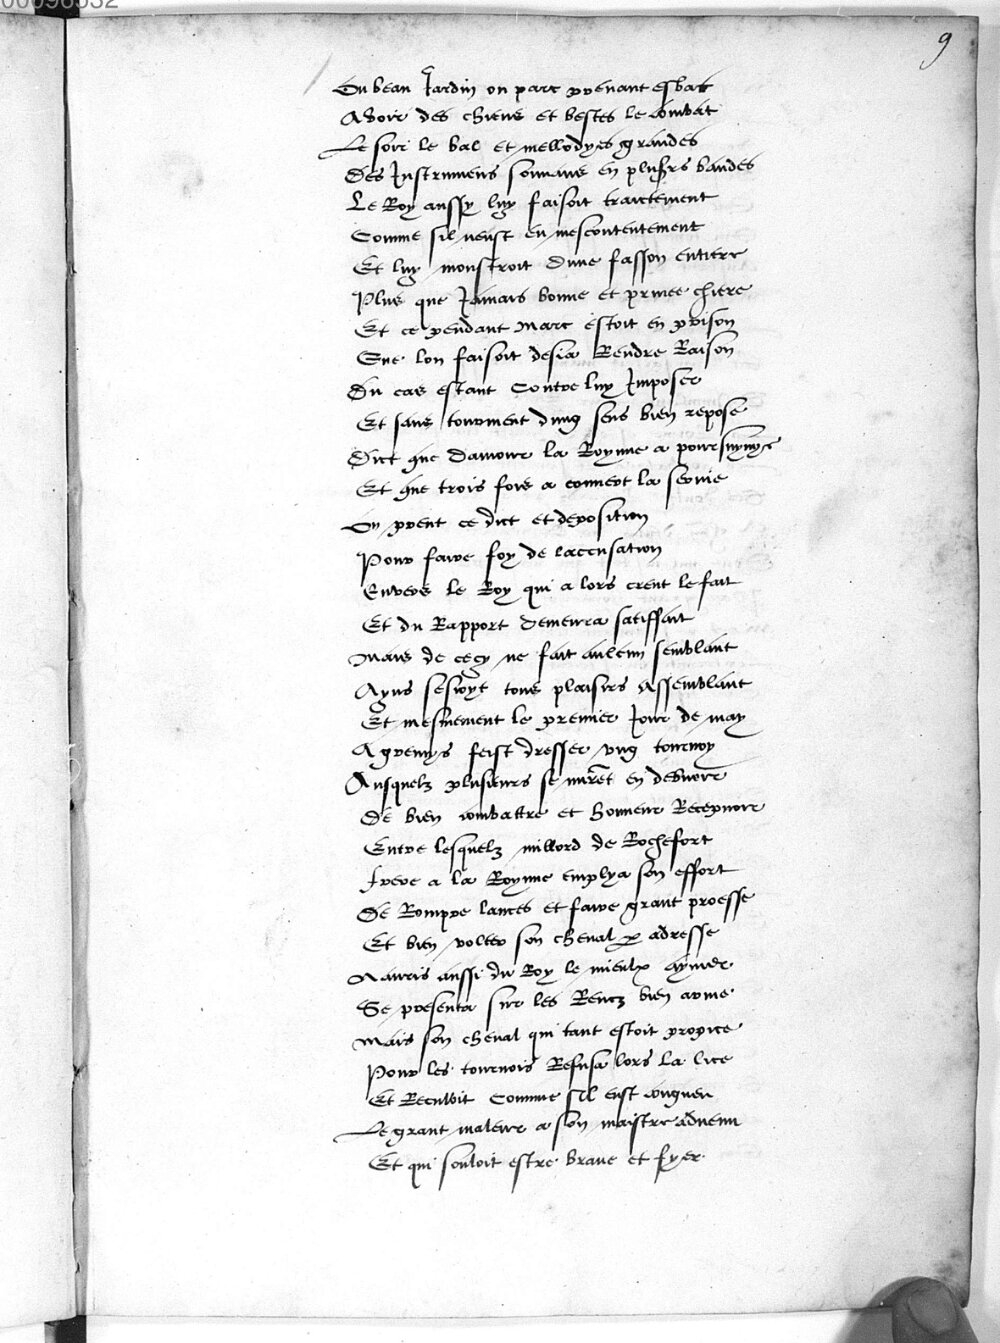 00096532
9
Ou beau Jardin ou parc prenant esbat
A voir des chiens et bestes le combat
Le soir le bal et mellodyes grandes
Des Instrumens sonnans en plusrs bandes
Le Roy aussy luy faisoit traictement
Comme sil neust eu mescontentement
Et luy monstroit dune fasson entiere
Plus que Jamais bonne et privee chiere
Et ce pendant Marc estoit en prison
Que lon faisoit desia Rendre Raison
Du cas estant Contre luy Imposer
Et sans tourment dung sens bien repose
Dict que damour la Roynne a poursuyvye
Et que trois fois a convert la servie
On prent ce dict et deposition
Pour faire foy de laccusation
Envers le Roy qui a lors creut le fait
Et du Rapport demeura satiffait
Mais de cecy ne fait aulcun semblant
Ayns sesioyt tous plaisirs Assemblant
Et mesmement le premier Jour de may
A grenvys feist dresser ung tournoy
Ausquelz plusieurs se miret en debvoir
De bien combattre et honneur Recepvoir
Entre lesquelz millord de Rochefort
frere a la Roynne emplya son effort
De Rompre lances et faire grant proesse
Et bien volter son cheval p adresse
Navris aussi du Roy le mieulx aymer
Se presenta sur les Rencz bien arme
Mais son cheval qui tant estoit propice
Pour les tournois Refusa lors la lice
Et Reculloit Comme sil eust congneu
Le grant maleur a son maistre advenu
Et qui souloit estre brave et fyer